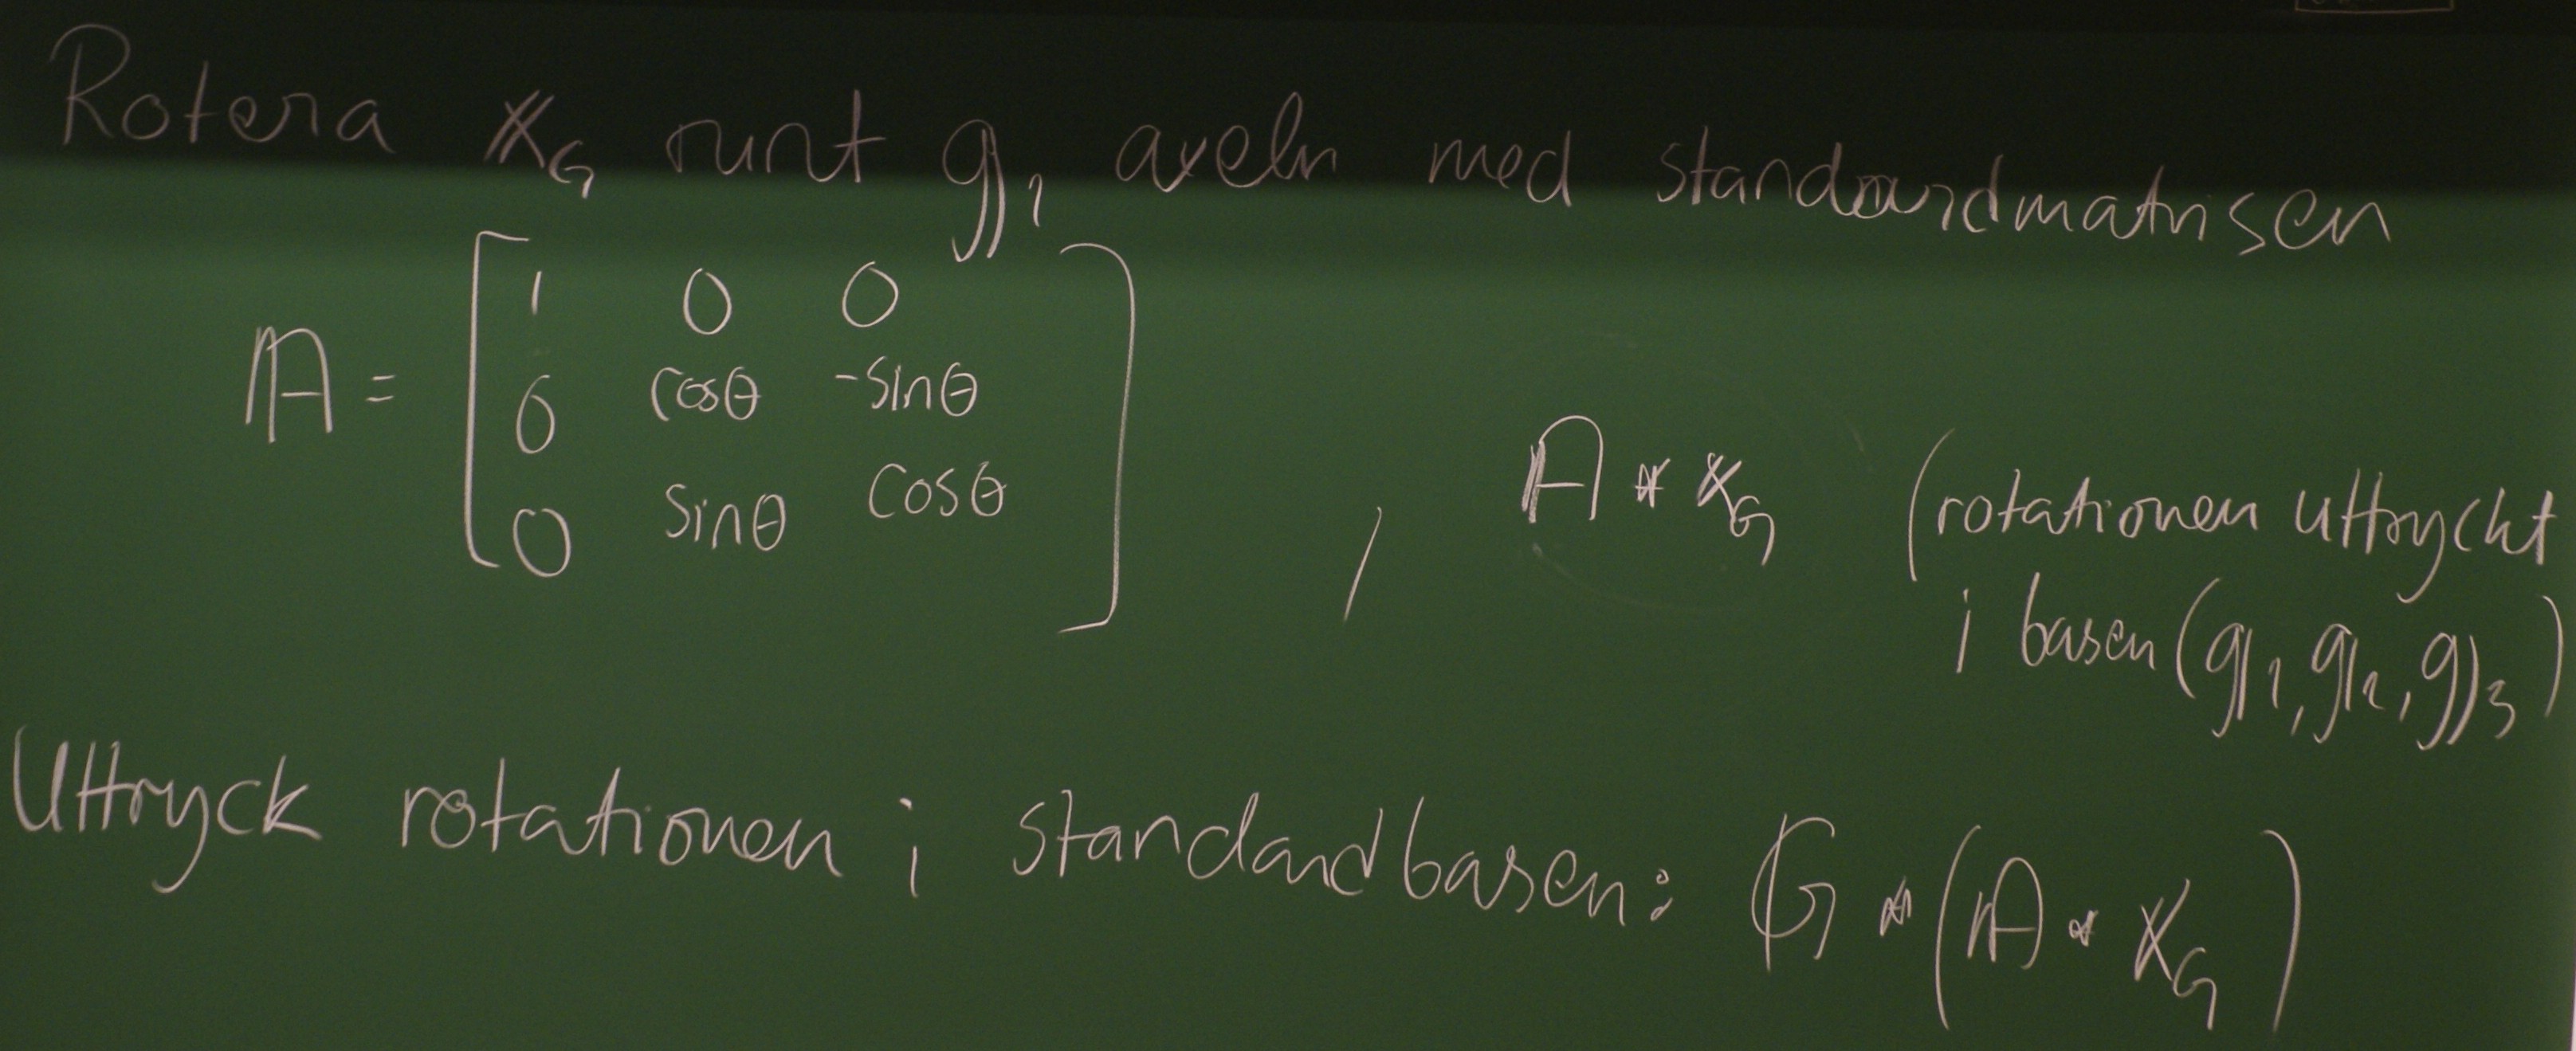 Rotera 𝕩_G runt 𝕘_1 axeln med standardmatrisen
𝔸 = [ 1 0 0
0 cosθ -sinθ
0 sinθ cosθ ] , 𝔸 * 𝕩_G (rotationen uttryckt
i basen (𝕘_1, 𝕘_2, 𝕘_3)
Uttryck rotationen i standardbasen: 𝔾 * (𝔸 * 𝕩_G)